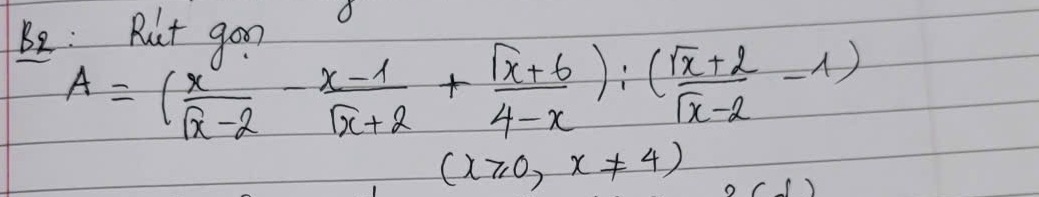 B2: Rút gọn
A = (x/(√x-2) - (x-1)/(√x+2) + (√x+6)/(4-x)) : ((√x+2)/(√x-2) - 1)
(x ⩾ 0, x ≠ 4)